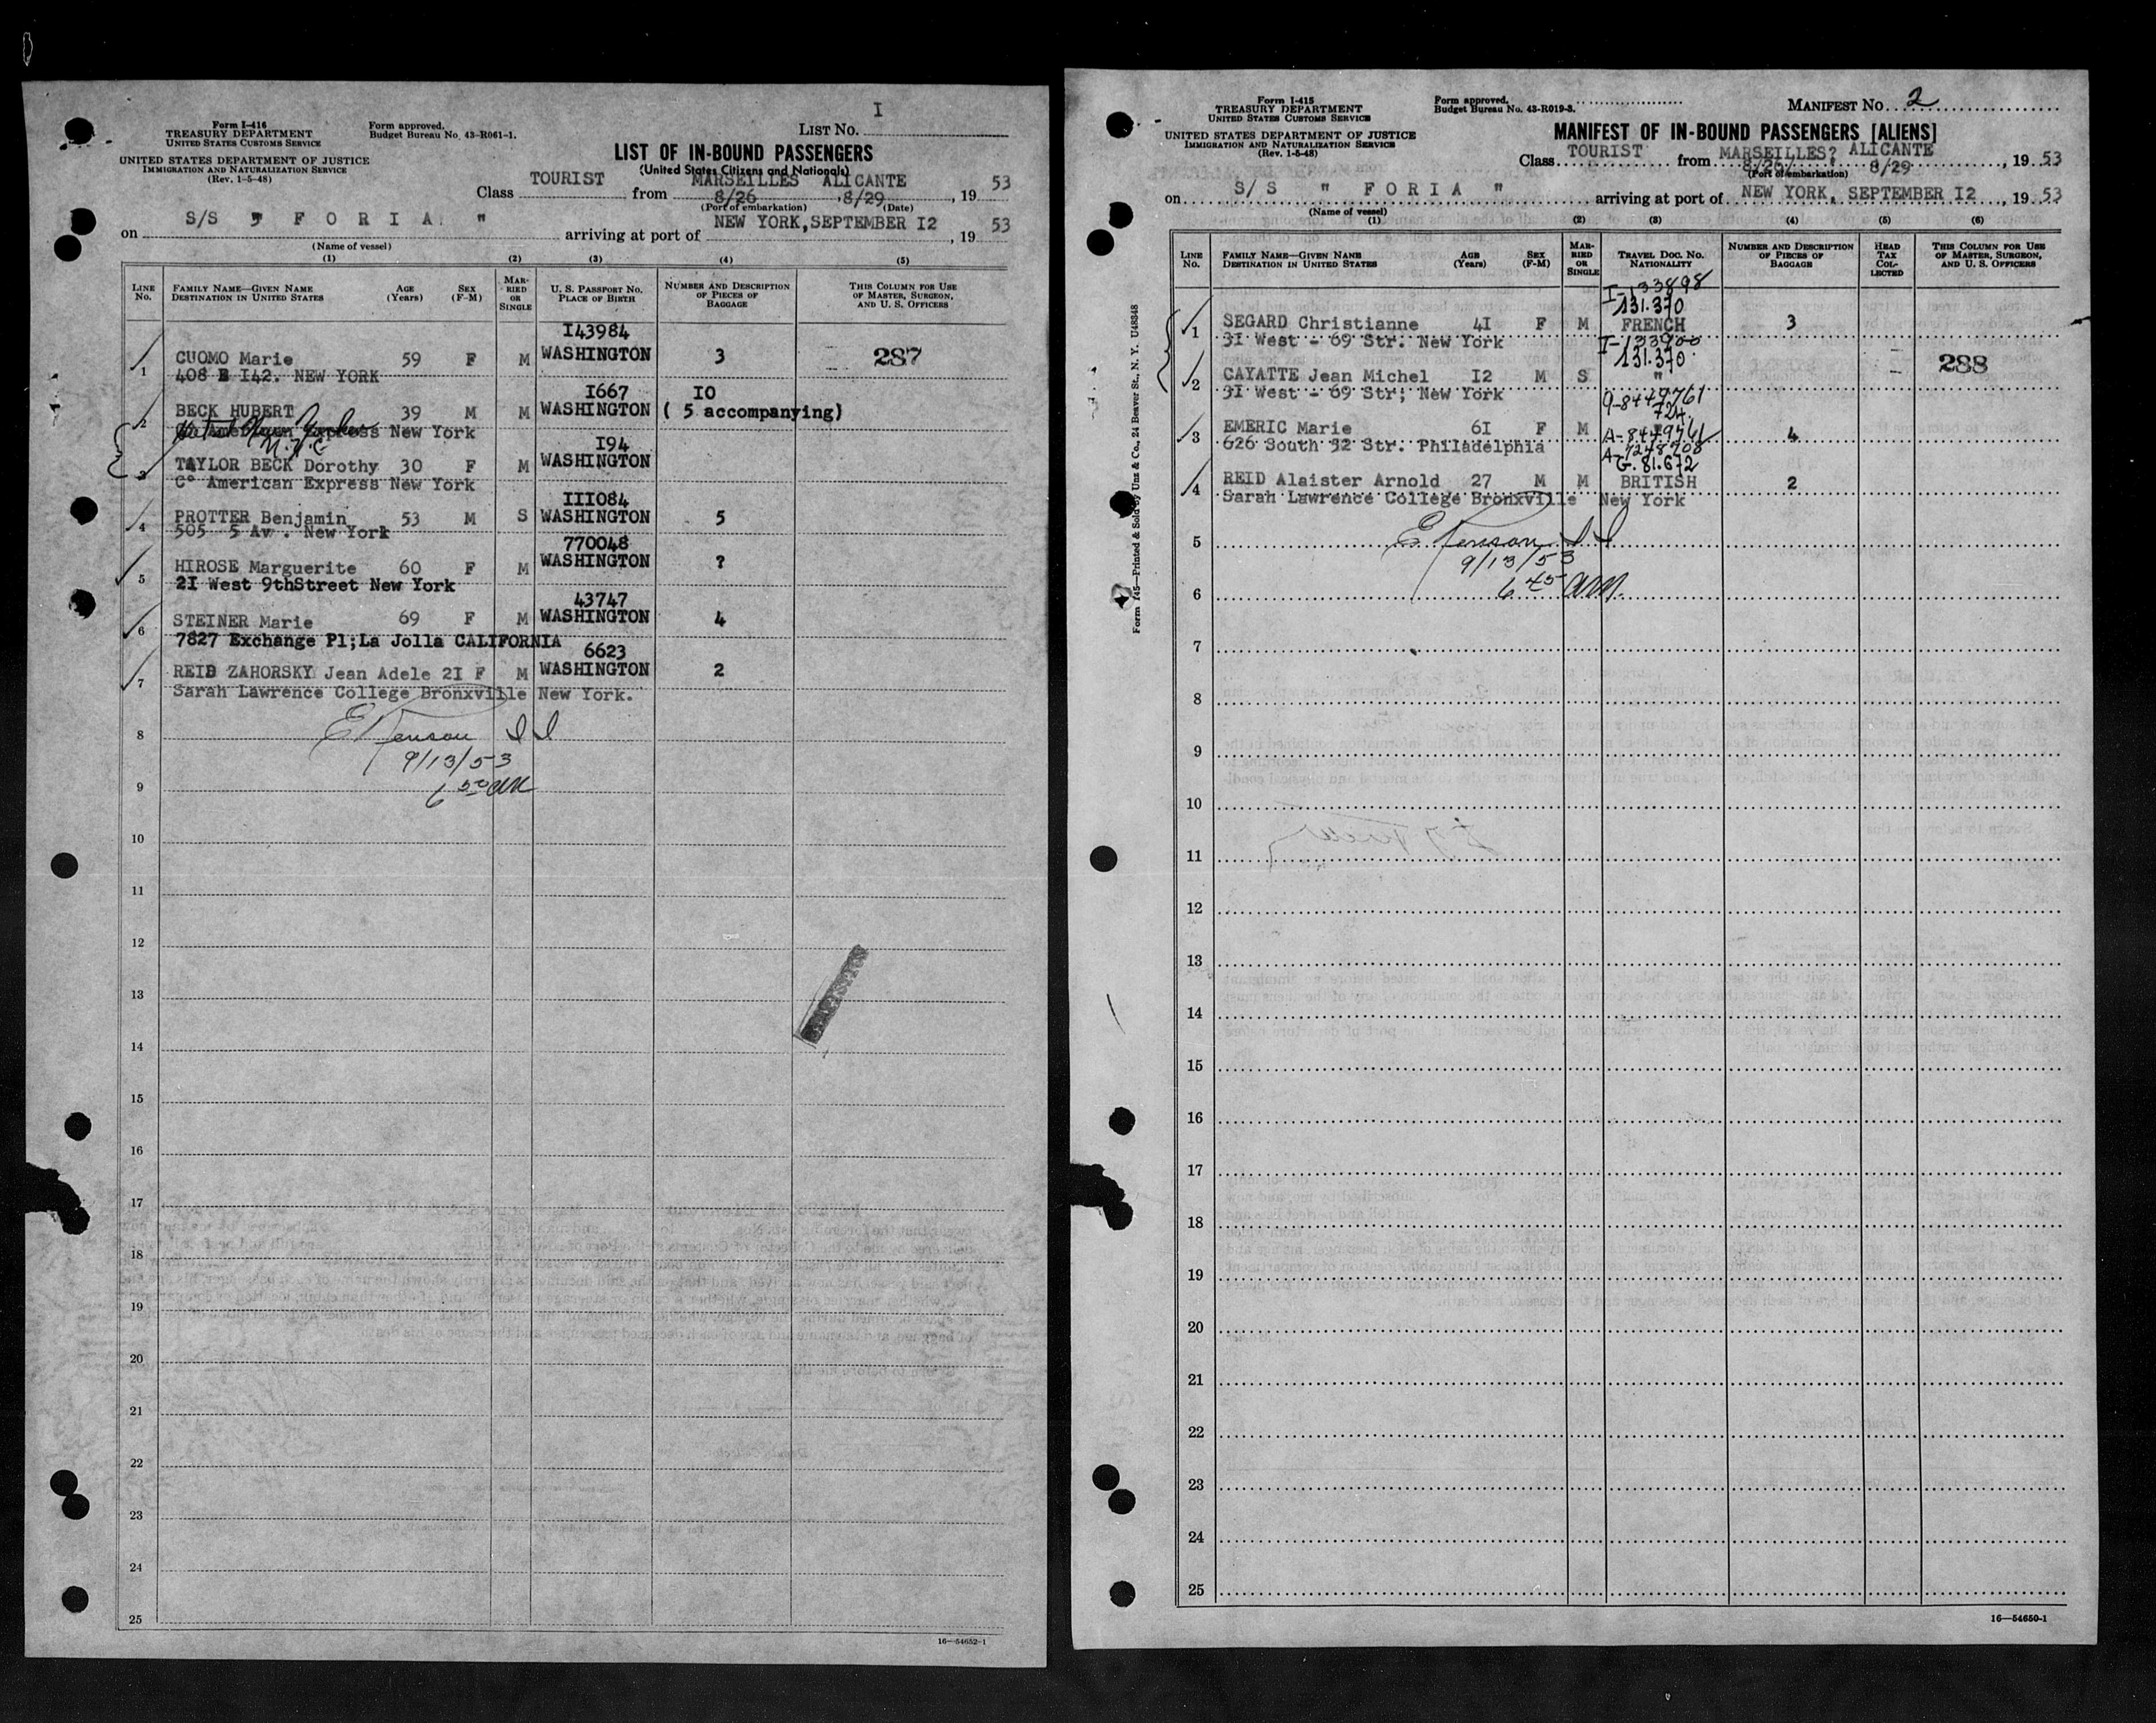 I
Form I-416
TREASURY DEPARTMENT
UNITED STATES CUSTOMS SERVICE
Form approved.
Budget Bureau No. 43-R061-1.
LIST NO.
UNITED STATES DEPARTMENT OF JUSTICE
IMMIGRATION AND NATURALIZATION SERVICE
(Rev. 1-5-48)
LIST OF IN-BOUND PASSENGERS
(United States Citizens and Nationals)
Class TOURIST from MARSEILLES ALICANTE , 19 53
8/26 8/29
(Port of embarkation) (Date)
on S/S " F O R I A " arriving at port of NEW YORK,SEPTEMBER I2 , 19 53
(Name of vessel)
(1) (2) (3) (4) (5)
LINE No. FAMILY NAME—GIVEN NAME DESTINATION IN UNITED STATES AGE (Years) SEX (F-M) MARRIED OR SINGLE U. S. PASSPORT NO. PLACE OF BIRTH NUMBER AND DESCRIPTION OF PIECES OF BAGGAGE THIS COLUMN FOR USE OF MASTER, SURGEON, AND U. S. OFFICERS
I43984
1 CUOMO Marie 59 F M WASHINGTON 3 287
408 E I42. NEW YORK
I667 IO
2 BECK HUBERT 39 M M WASHINGTON ( 5 accompanying)
Express New York
N.Y.C
I94
3 TAYLOR BECK Dorothy 30 F M WASHINGTON
C° American Express New York
III084
4 PROTTER Benjamin 53 M S WASHINGTON 5
505 5 Av . New York
770048
5 HIROSE Marguerite 60 F M WASHINGTON ?
2I West 9thStreet New York
43747
6 STEINER Marie 69 F M WASHINGTON 4
7827 Exchange Pl;La Jolla CALIFORNIA
6623
7 REID ZAHORSKY Jean Adele 2I F M WASHINGTON 2
Sarah Lawrence College Bronxville New York.
8
9/13/53
9
6 50 AM
10
11
12
13
14
15
16
17
18
19
20
21
22
23
24
25
16—54652-1
Form I-415
TREASURY DEPARTMENT
UNITED STATES CUSTOMS SERVICE
Form approved.
Budget Bureau No. 43-R019-3.
MANIFEST NO. 2
UNITED STATES DEPARTMENT OF JUSTICE
IMMIGRATION AND NATURALIZATION SERVICE
(Rev. 1-5-48)
MANIFEST OF IN-BOUND PASSENGERS [ALIENS]
Class TOURIST from MARSEILLES? ALICANTE , 19 53
8/26/ 8/29
(Port of embarkation)
on S/S " F O R I A " arriving at port of NEW YORK, SEPTEMBER I2 , 19 53
(Name of vessel)
(1) (2) (3) (4) (5) (6)
LINE No. FAMILY NAME—GIVEN NAME DESTINATION IN UNITED STATES AGE (Years) SEX (F-M) MARRIED OR SINGLE TRAVEL DOC. NO. NATIONALITY NUMBER AND DESCRIPTION OF PIECES OF BAGGAGE HEAD TAX COLLECTED THIS COLUMN FOR USE OF MASTER, SURGEON, AND U. S. OFFICERS
I-133898
131.370
1 SEGARD Christianne 4I F M FRENCH 3
3I West - 69 Str. New York
I-133900
131.370
2 CAYATTE Jean Michel I2 M S " 288
3I West - 69 Str; New York
9-8449761
724.
3 EMERIC Marie 6I F M A-8449761 4
626 South 52 Str. Philadelphia
A-7248708
G. 81.672
4 REID Alaister Arnold 27 M M BRITISH 2
Sarah Lawrence College Bronxville New York
5
9/13/53
6
6 45 AM.
7
8
9
10
11
12
13
14
15
16
17
18
19
20
21
22
23
24
25
16—54650-1
Form 145—Printed & Sold by Unz & Co., 24 Beaver St., N. Y. U48348